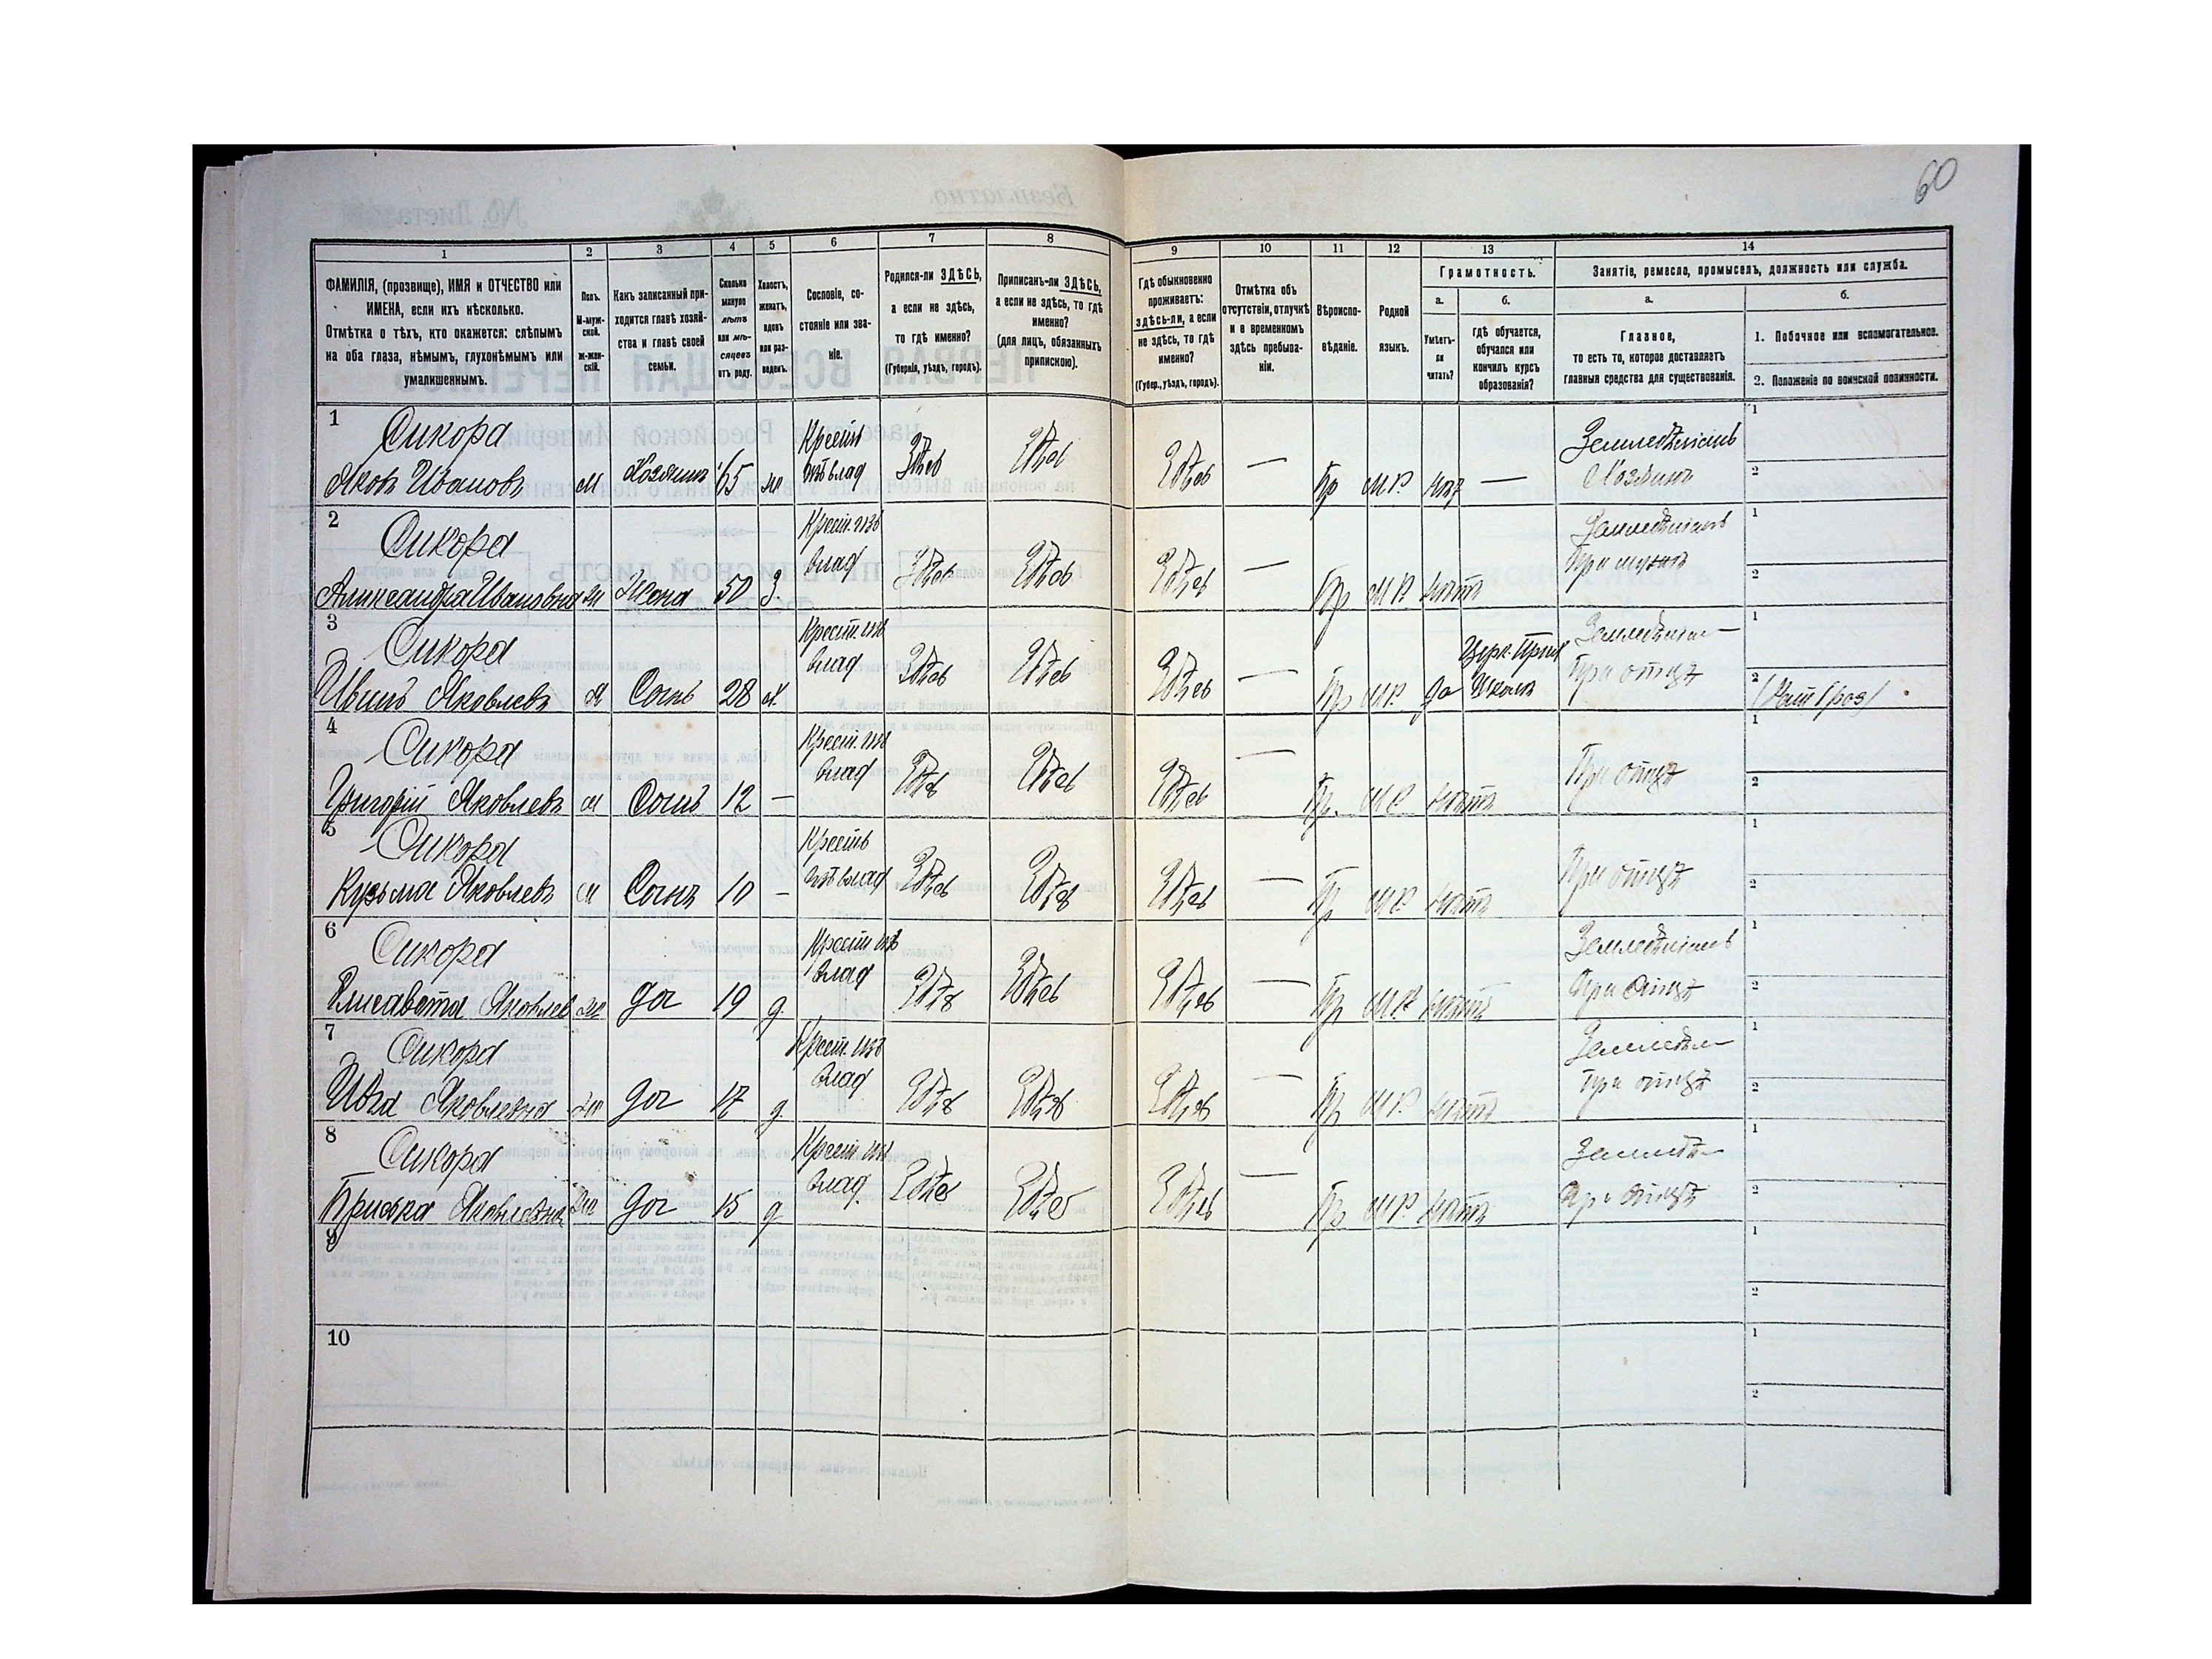 60
1
2
3
4
5
6
7
8
9
10
11
12
13
14
ФАМИЛІЯ, (прозвище), ИМЯ и ОТЧЕСТВО или
ИМЕНА, если ихъ нѣсколько.
Отмѣтка о тѣхъ, кто окажется: слѣпымъ
на оба глаза, нѣмымъ, глухонѣмымъ или
умалишеннымъ.
Полъ.
М-муж-
ской.
Ж-жен-
скій.
Какъ записанный при-
ходится главѣ хозяй-
ства и главѣ своей
семьи.
Сколько
минуло
лѣтъ
или мѣ-
сяцевъ
отъ роду.
Холостъ,
женатъ,
вдовъ
или раз-
веденъ.
Сословіе, со-
стояніе или зва-
ніе.
Родился-ли ЗДѢСЬ,
а если не здѣсь,
то гдѣ именно?
(Губернія, уѣздъ, городъ).
Приписанъ-ли ЗДѢСЬ,
а если не здѣсь, то гдѣ
именно?
(для лицъ, обязанныхъ
припискою).
Гдѣ обыкновенно
проживаетъ:
здѣсь-ли, а если
не здѣсь, то гдѣ
именно?
(Губер., уѣздъ, городъ).
Отмѣтка объ
отсутствіи, отлучкѣ
и о временномъ
здѣсь пребыва-
ніи.
Вѣроиспо-
вѣданіе.
Родной
языкъ.
Грамотность.
а.
б.
Умѣетъ-
ли
читать?
гдѣ обучается,
обучался или
кончилъ курсъ
образованія?
Занятіе, ремесло, промыселъ, должность или служба.
а.
б.
Главное,
то есть то, которое доставляетъ
главныя средства для существованія.
1. Побочное или вспомогательное.
2. Положеніе по воинской повинности.
1
Сикора
Яковъ Ивановъ м Хозяинъ 65 ж
Крестъ
изъ влад Здѣсь Здѣсь Здѣсь — Пр М.Р. —
Земледѣліемъ
Хозяинъ
1
2
2
Сикора
Александра Ивановна ж Жена 50 З.
Крест. изъ
влад Здѣсь Здѣсь Здѣсь — Пр М.Р. нѣтъ
Земледѣліемъ
При мужѣ
1
2
3
Сикора
Иванъ Яковлевъ м Сынъ 28 х.
Крест. изъ
влад Здѣсь Здѣсь Здѣсь — Пр М.Р. да
Церк. Прих
Школѣ
При отцѣ
1
2
4
Сикора
Григорій Яковлевъ м Сынъ 12 —
Крест. изъ
влад Здѣсь Здѣсь Здѣсь — Пр. М.Р. нѣтъ При отцѣ
1
2
5
Сикора
Кузьма Яковлевъ м Сынъ 10 —
Крестъ
изъ влад Здѣсь Здѣсь Здѣсь — Пр М.Р. нѣтъ При отцѣ
1
2
6
Сикора
Елисавета Яковлев ж доч 19 д.
Крест изъ
влад Здѣсь Здѣсь Здѣсь — Пр М.Р. нѣтъ
Земледѣліемъ
При отцѣ
1
2
7
Сикора
Ивга Яковлевна ж доч 17 д.
Крест. изъ
влад Здѣсь Здѣсь Здѣсь — Пр М.Р. нѣтъ
Земледѣл—
При отцѣ
1
2
8
Сикора
Приська Яковлевна ж доч 15 д
Крест. изъ
влад Здѣсь Здѣсь Здѣсь — Пр М.Р. нѣтъ
Земледѣ—
При отцѣ
1
2
9
1
2
10
1
2